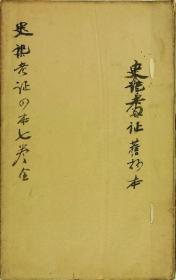 史記考证舊抄本
史記考证四本七卷全